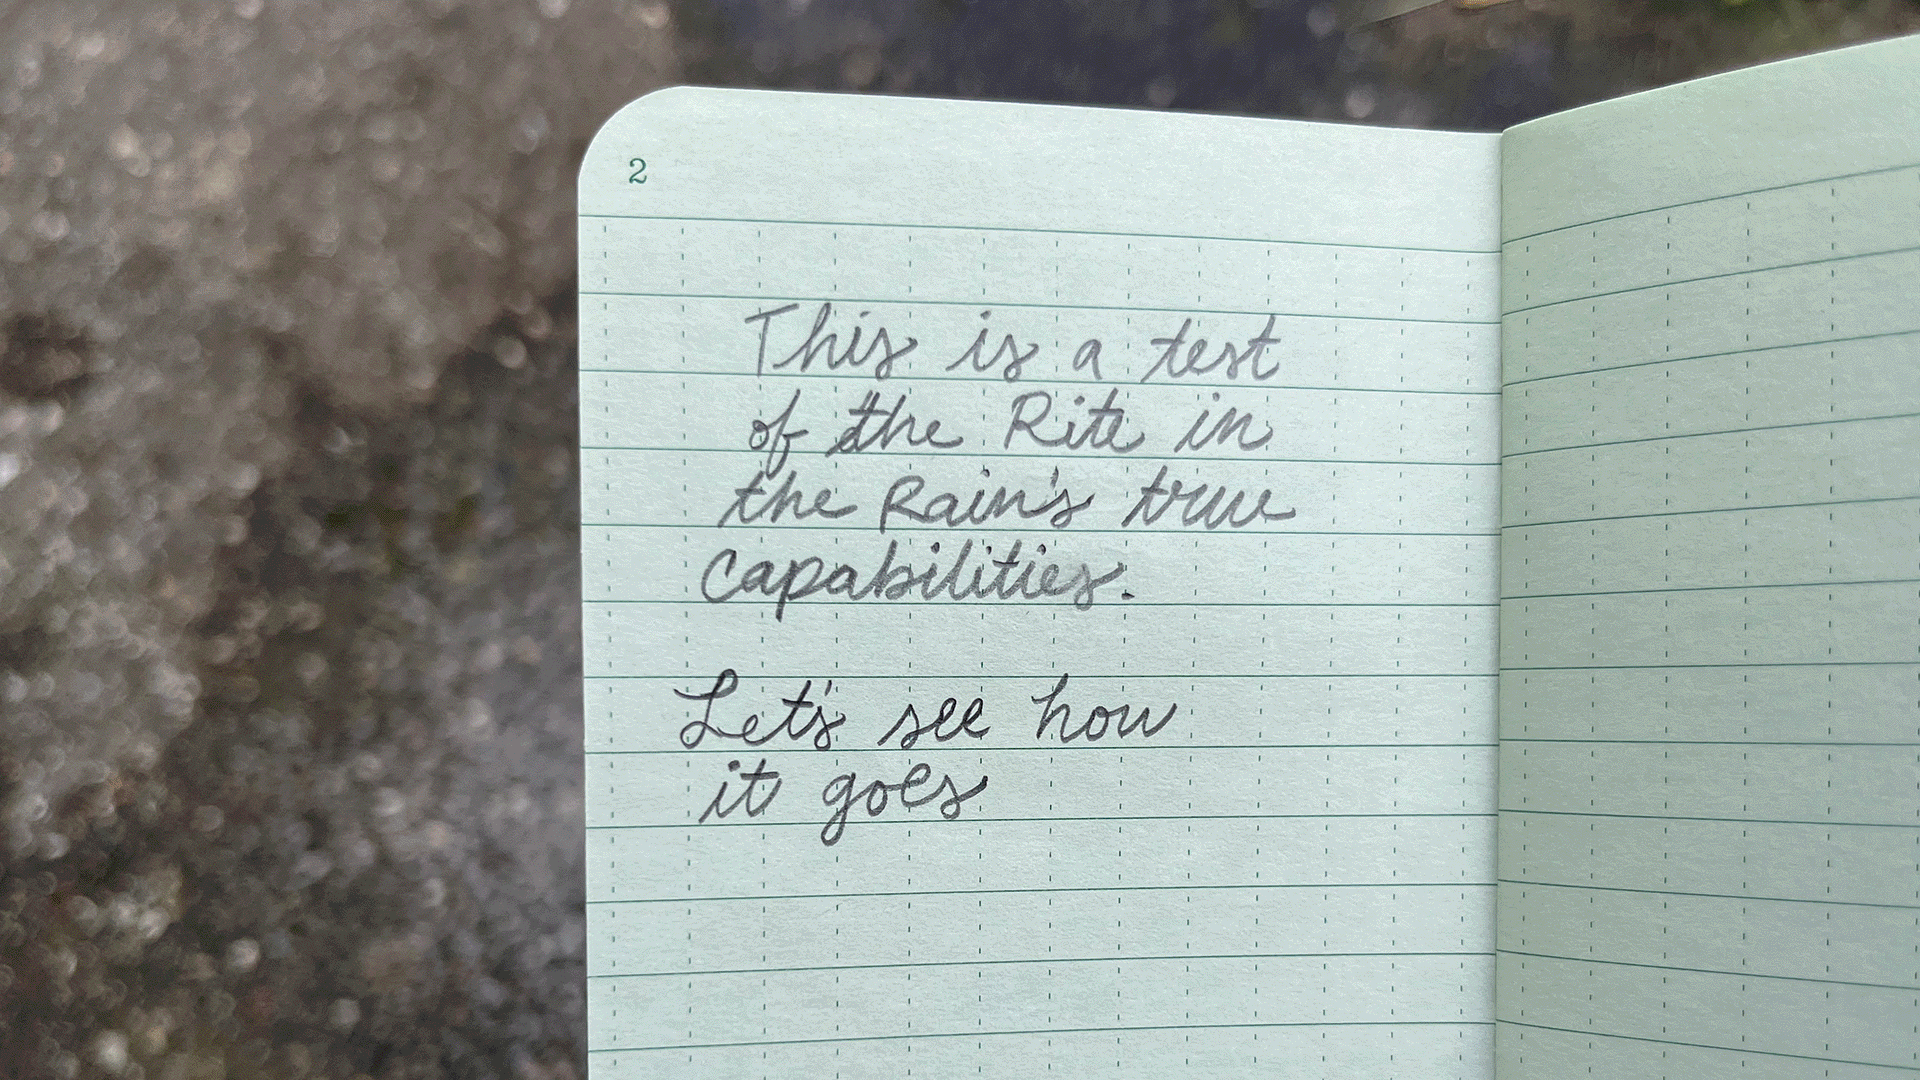 2
This is a test
of the Rite in
the Rain's true
Capabilities.
Let's see how
it goes